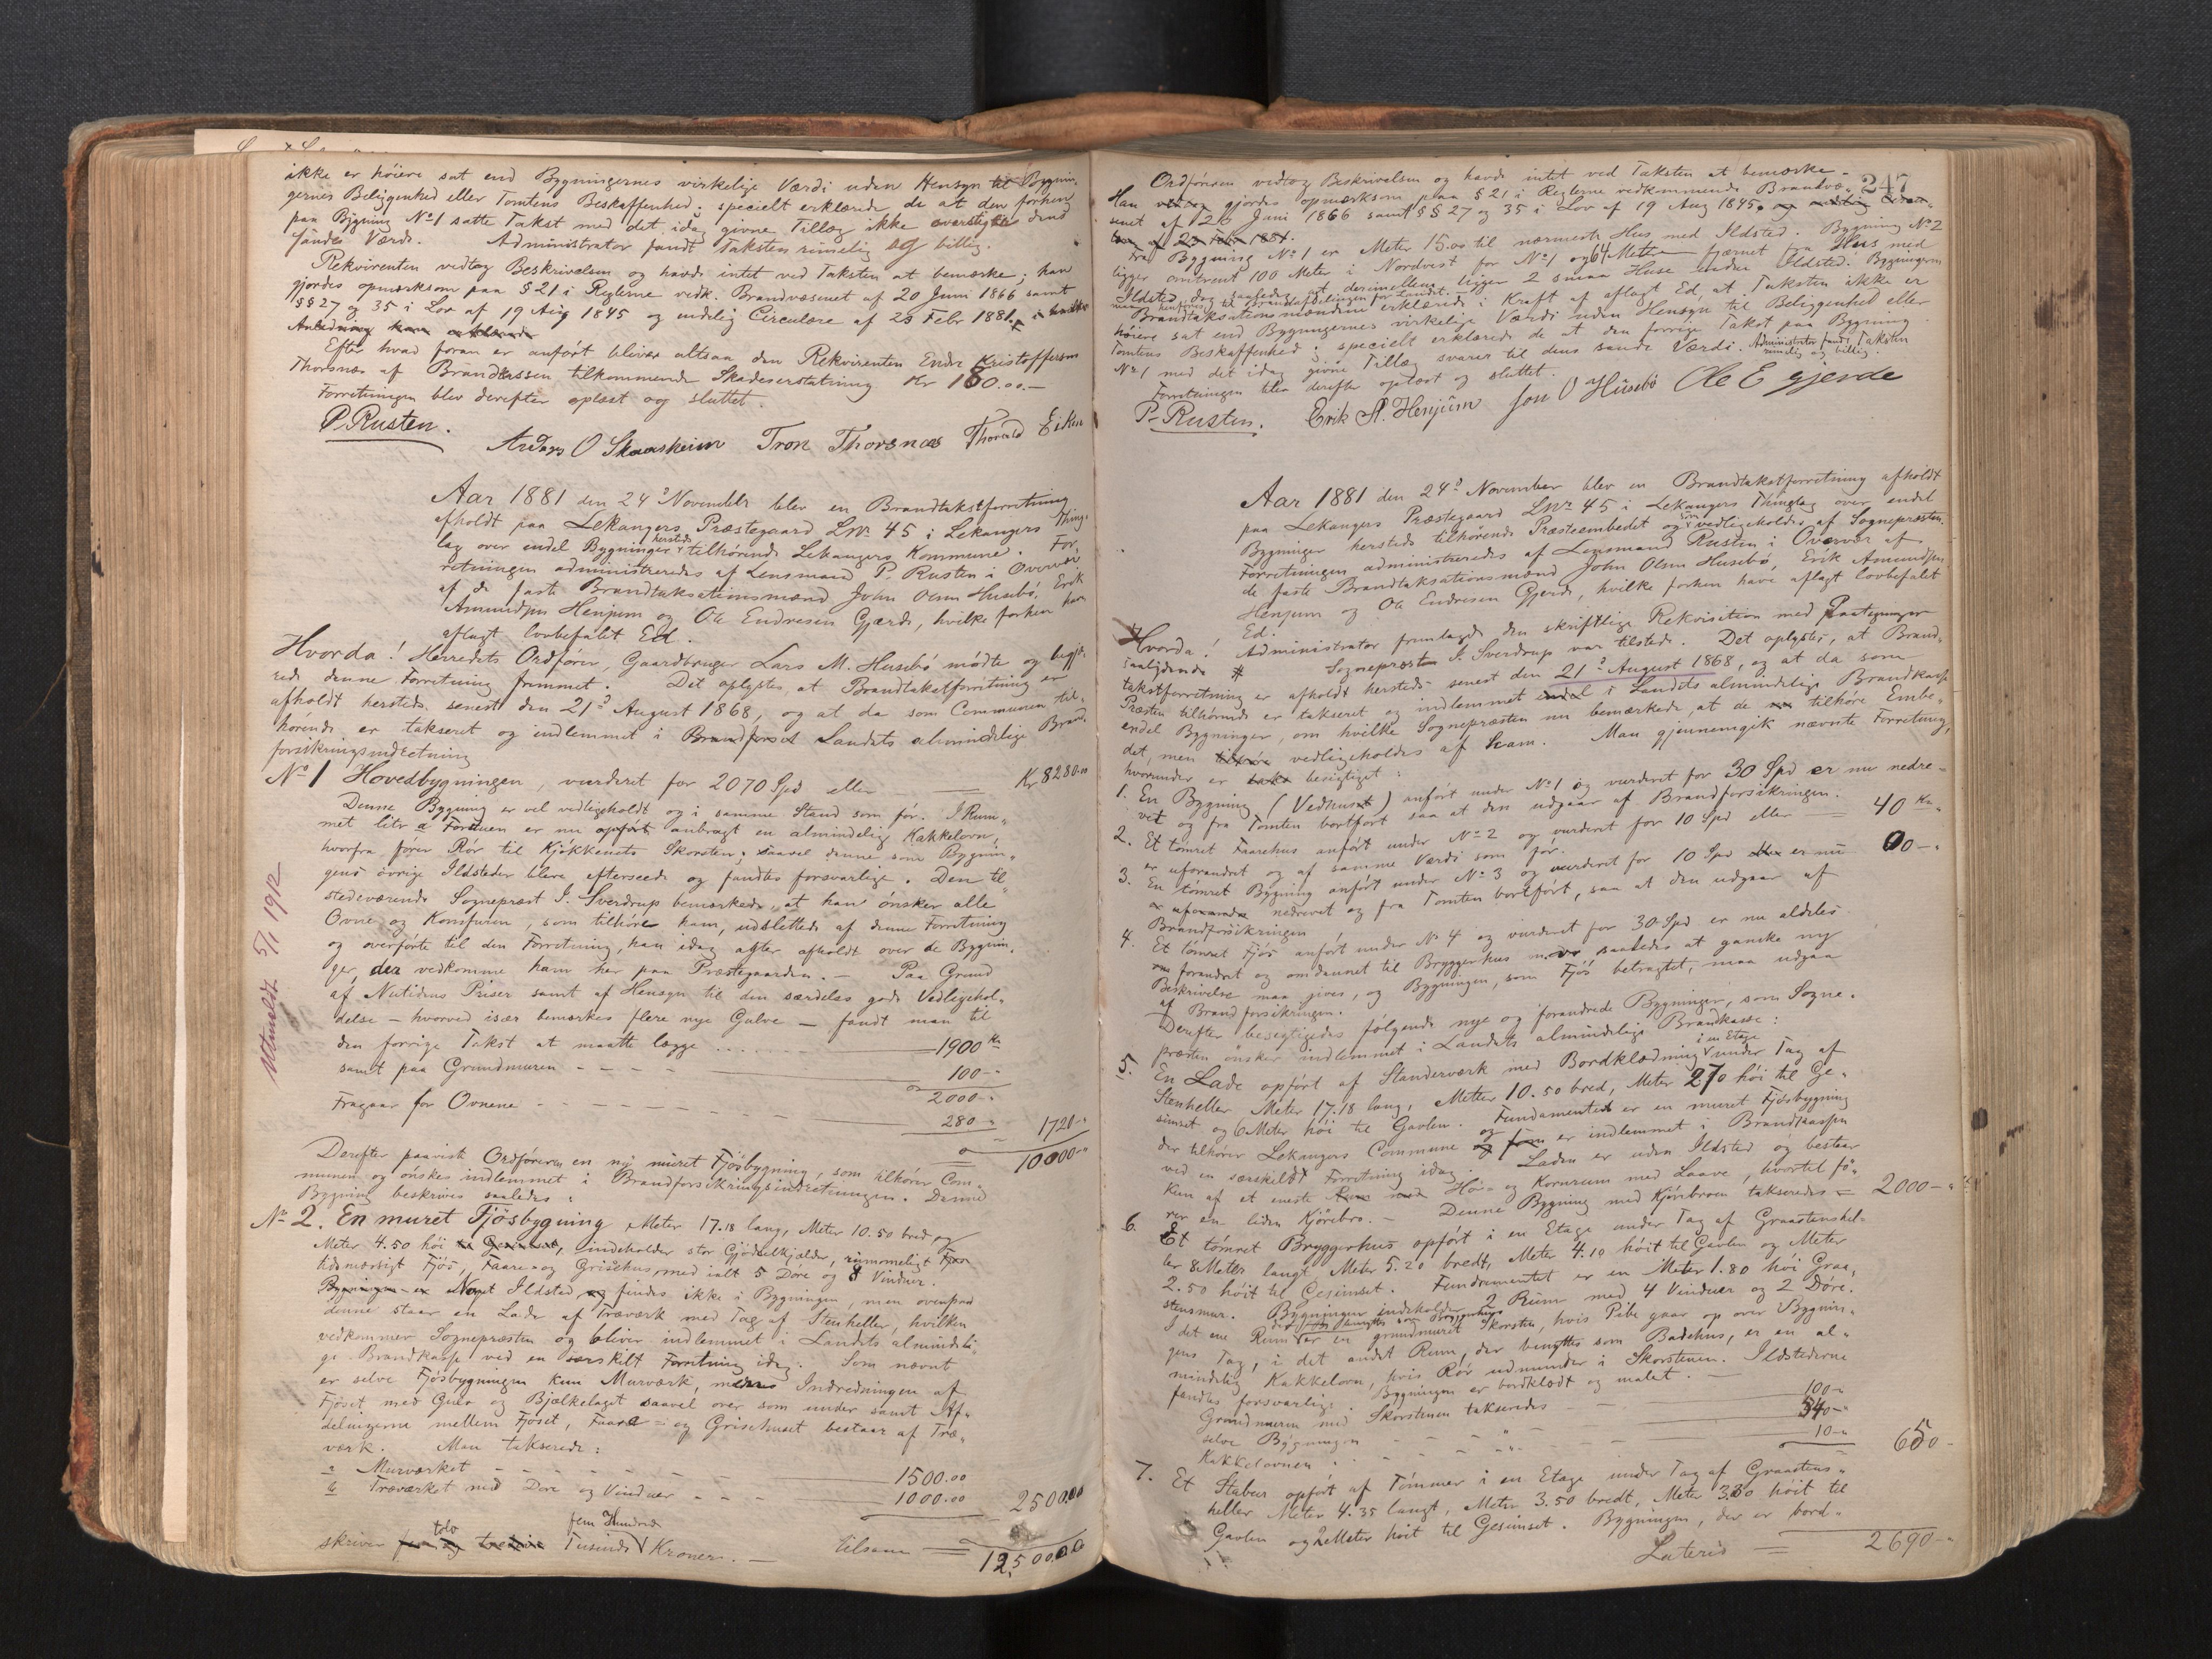 ikke er höiere sat end Bygningernes virkelige Værdi uden Hensyn til Bygnin-
gernes Beliggenhed eller Tomtens Beskaffenhed; specielt erklærede de at den forhen
paa Bygning No 1 satte Takst med det idag givne Tillæg ikke overstiger dens
sande Værdi. Administrator fandt Taksten rimelig og billig.
Rekvirenten vedtog Beskrivelsen og havde intet ved Taksten at bemærke; han
gjordes opmærksom paa § 21 i Reglerne vedk. Brandvæsenet af 20 Juni 1866 samt
§§ 27 og 35 i Lov af 19 Aug 1845 og endelig Circulære af 23 Febr 1881. i hvilken
Anledning han erklærede
Efter hvad foran er anført bliver altsaa den Rekvirenten Endre Kristoffersen
Thorsnæs af Brandkassen tilkommende Skadeserstatning Kr 180.00.—
Forretningen blev derefter oplæst og sluttet.
P. Rusten.
Anders O Skaasheim Tron Thorsnæs Thorvald Eiken
Aar 1881 den 24de November blev en Brandtakstforretning
afholdt paa Lekangers Præstegaard LNr 45 i Lekangers Thing-
lag over endel Bygninger hersteds tilhørende Lekangers Kommune. For-
retningen administreredes af Lensmand P. Rusten i Overvær
af de faste Brandtaksationsmænd John Olsen Husebö, Erik
Amundsen Henjum og Ole Endresen Gjerde, hvilke forhen have
aflagt lovbefalet Ed.
Hvorda! Herredets Ordförer, Gaardbruger Lars M. Husebö mödte og begjæ-
rede denne Forretning fremmet. Det oplystes, at Brandtakstforretning er
afholdt hersteds senest den 21de August 1868, og at da som Communen til-
hörende er takseret og indlemmet i Brandforsik Landets almindelige Brand-
forsikringsindretning
No 1 Hovedbygningen, vurderet for 2070 Spd eller — Kr 8280.00
Denne Bygning er vel vedligeholdt og i samme Stand som för. I Rum-
met litr a Forstuen er nu opfört anbragt en almindelig Kakkelovn,
hvorfra förer Rör til Kjökkenets Skorsten; saavel denne som Bygnin-
gens övrige Ildsteder bleve efterseede og fandtes forsvarlige. Den til-
stedeværende Sogneprest J. Sverdrup bemærkede, at han önsker alle
Ovne og Komfuren, som tilhöre ham, udslettede af denne Forretning
og overförte til den Forretning, han idag agter afholdt over de Bygnin-
ger, der vedkomme ham her paa Præstegaarden. — Paa Grund
af Nutidens Priser samt af Hensyn til den særdeles gode Vedligehol-
delse — hvorved især bemærkes flere nye Gulve — fandt man til
den forrige Takst at maatte lægge — 1900 Kr
samt paa Grundmuren — 100 —
2000 —
Fragaar for Ovnene — 280 — 1720 —
10000 —
Derefter paaviste Ordföreren en ny muret Fjösbygning, som tilhörer Com-
munen og önskes indlemmet i Brandforsikringsindretningen. Denne
Bygning beskrives saaledes:
No 2. En muret Fjösbygning Meter 17.18 lang, Meter 10.50 bred og
Meter 4.50 höi til Gesimset, indeholder stor Gjödselkjælder, rummeligt Fjös
tidsmæssigt Fjös, Faare- og Grisehus med ialt 5 Döre og 8 Vinduer.
Bygningen er Noget Ildsted og findes ikke i Bygningen, men ovenpaa
denne staar en Lade af Træværk med Tag af Stenheller, hvilken
vedkommer Sognepresten og bliver indlemmet i Landets almindeli-
ge Brandkasse ved en særskilt Forretning idag. Som nævnt
er selve Fjösbygningen kun Murværk, medens Indredningen af
Fjöset med Gulv og Bjælkelaget saavel over som under samt Af-
delingerne mellem Fjöset, Faare- og Grisehuset bestaar af Træ-
værk. Man takserede:
a Murværket — 1500.00
b Træværket med Döre og Vinduer — 1000.00 2500.00
skriver tolv Tusinde fem Hundrede Kroner. — tilsam = 12,500.00
Utmeldt 5/1 1912
247
Ordföreren vedtog Beskrivelsen og havde intet ved Taksten at bemærke.
Han vedtog gjordes opmærksom paa § 21 i Reglerne vedkommende Brandvæ-
senet af 20 Juni 1866 samt §§ 27 og 35 i Lov af 19 Aug 1845. og endelig
af 23 Febr 1881.
Fra Bygning No 1 er Meter 15.00 til nærmeste Hus med Ildsted. Bygning No 2
ligger omtrent 100 Meter i Nordvest for No 1 og 64 Meter fjærnet fra Hus med
Ildsted dog saaledes at derimellem ligger 2 smaa Huse uden Ildsted. Bygningerne
henhöre til Brandafdelingen for Landet.
Brandtaksationsmændene erklærede i Kraft af aflagt Ed, at Taksten ikke er
höiere sat end Bygningernes virkelige Værdi uden Hensyn til Beliggenhed eller
Tomtens Beskaffenhed; specielt erklærede de at den forrige Takst paa Bygning
No 1 med det idag givne Tillæg svarer til dens sande Værdi. Administrator fandt Taksten
rimelig og billig.
Forretningen blev derefter oplæst og sluttet.
P. Rusten. Erik A. Henjum Jon O Husebö Ole E gjerde
Aar 1881 den 24de November blev en Brandtakstforretning afholdt
paa Lekangers Præstegaard LNr 45 i Lekangers Thinglag over endel
Bygninger hersteds tilhörende Præsteembedet og som vedligeholdes af Sognepræsten.
Forretningen administreredes af Lensmand Rusten i Overvær af
de faste Brandtaksationsmænd John Olsen Husebö, Erik Amundsen
Henjum og Ole Endresen Gjerde, hvilke forhen have aflagt lovbefalet
Ed.
Hvorda! Administrator fremlagde den skriftlige Rekvisition med Paategninger
saalydende # Sognepræsten J. Sverdrup var tilstede. Det oplystes, at Brand-
takstforretning er afholdt hersteds senest den 21de August 1868, og at da som
Præsten tilhörende er takseret og indlemmet endel i Landets almindelige Brandkasse
endel Bygninger, om hvilke Sognepræsten nu bemærkede, at de tilhöre Embe-
det, men tilhöre vedligeholdes af ham. Man gjennemgik nævnte Forretning,
hvorunder er besigtiget:
1. En Bygning (Vedhuset) anfört under No 1 og vurderet for 30 Spd er nu nedre-
vet og fra Tomten bortfört saa at den udgaar af Brandforsikringen.
2. Et tömret Faarehus anfört under No 2 og vurderet for 10 Spd eller — 40 Kr
er uforandret og af samme Værdi som för.
3. En tömret Bygning anfört under No 3 og vurderet for 10 Spd er nu 00 —
nedrevet og fra Tomten bortfört, saa at den udgaar af
Brandforsikringen
4. Et tömret Fjös anfört under No 4 og vurderet for 30 Spd er nu aldeles
forandret og omdannet til Bryggerhus m.v. saaledes at ganske ny
Beskrivelse maa gives, og Bygningen, som Fjös betragtet, maa udgaa
af Brandforsikringen.
Derefter besigtigedes fölgende nye og forandrede Bygninger, som Sogne-
præsten önsker indlemmet i Landets almindelige Brandkasse:
5. En Lade opfört af Standerværk med Bordklædning i en Etage under Tag af
Stenheller Meter 17.18 lang, Meter 10.50 bred, Meter 2.70 höi til Ge-
simset og 6 Meter höi til Gavlen. Fundamentet er en muret Fjösbygning
der tilhörer Lekangers Commune og er indlemmet i Brandkassen
ved en særskilt Forretning idag. Laden er uden Ildsted og bestaar
kun af et eneste Hö- og Kornrum med Laave, hvortil fö-
rer en liden Kjörebro. — Denne Bygning med Kjörebroen takseredes = 2000 —
6. Et tömret Bryggerhus opfört i en Etage under Tag af Graastenshel-
ler 8 Meter langt, Meter 5.20 bredt, Meter 4.10 höit til Gavlen og Meter
2.50 höit til Gesimset. Fundamentet er en Meter 1.80 höi Graa-
stensmur. Bygningen indeholder 2 Rum med 4 Vinduer og 2 Döre.
I det ene Rum der benyttes som Bryggerhus er en grundmuret Skorsten, hvis Pibe gaar op over Bygnin-
gens Tag, i det andet Rum, der benyttes som Badehus, er en al-
mindelig Kakkelovn, hvis Rör udmunder i Skorstenen. Ildstederne
fandtes forsvarlige. Bygningen er bordklædt og malet. —
Grundmuren med Skorstenen takseredes — 100 —
selve Bygningen — 540 —
Kakkelovnen — 10 — 650 —
7. Et Stabur opfört af Tömmer i en Etage under Tag af Graastens-
heller Meter 4.35 langt, Meter 3.50 bredt, Meter 3.30 höit til
Gavlen og 2 Meter höit til Gesimset. Bygningen, der er bord-
Lateris = 2690 —